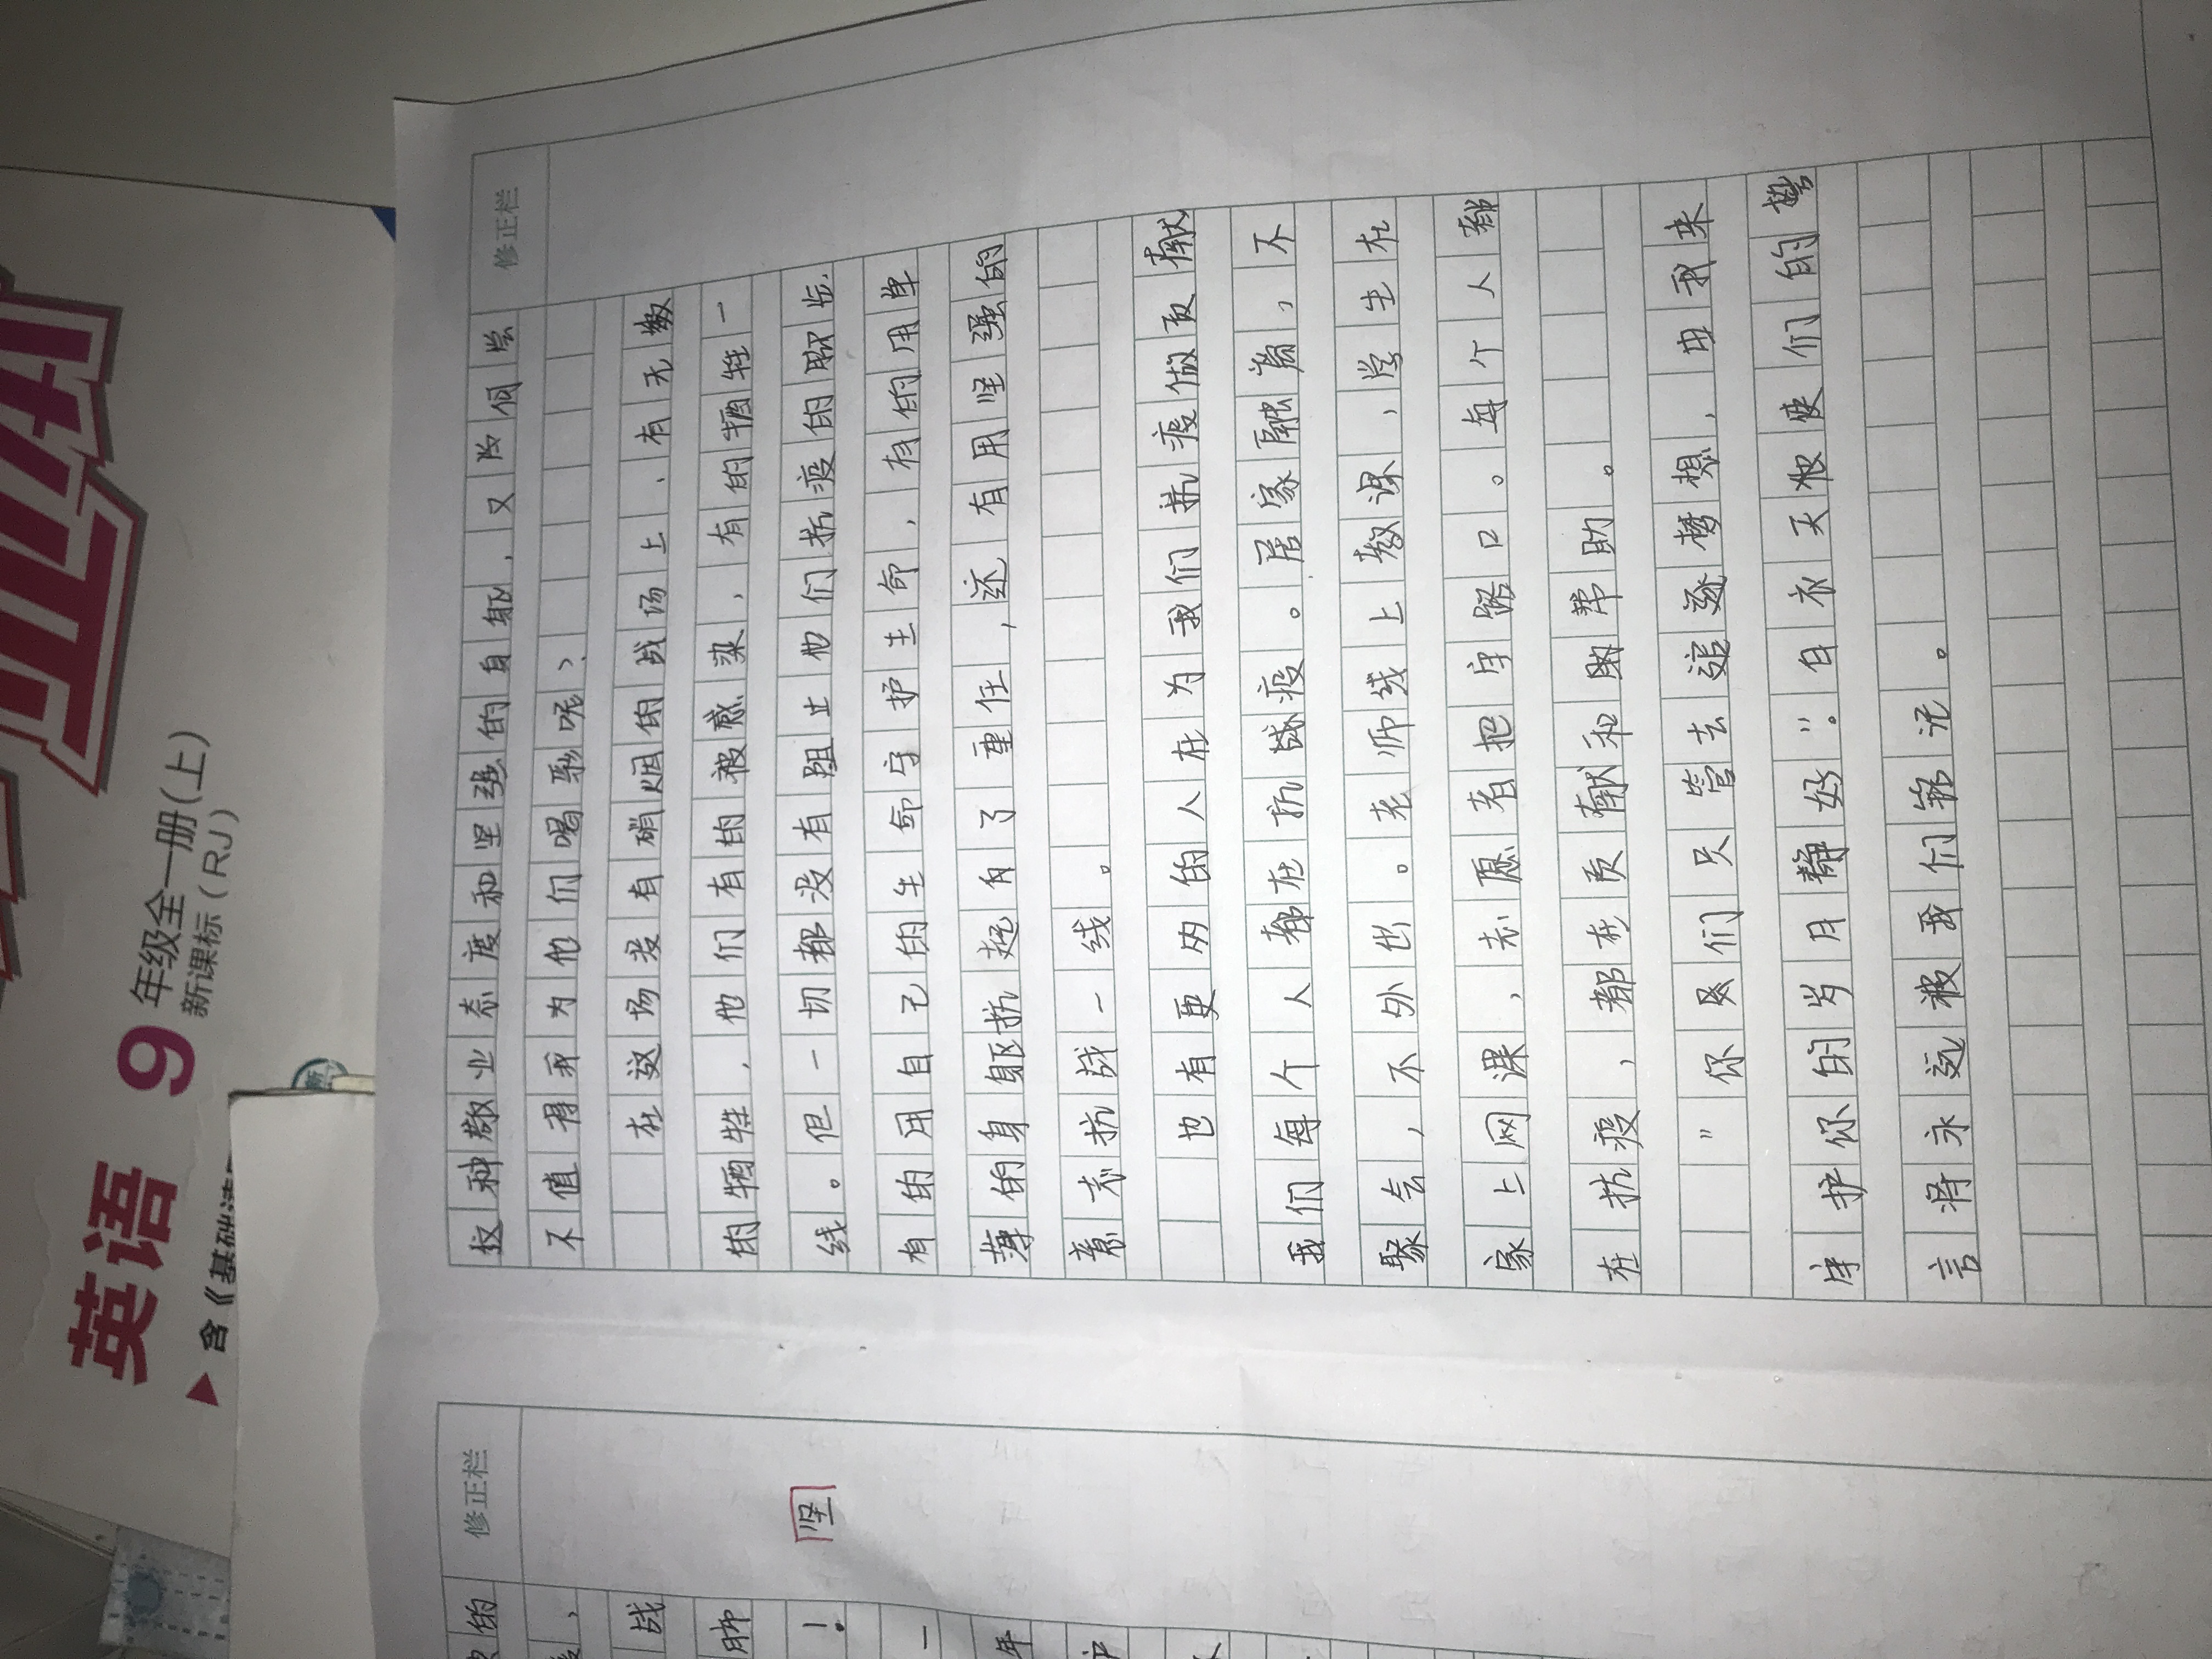 英语
9
年级全一册(上)
新课标(RJ)
含《基础
修正栏
这种敬业态度和坚强的身躯,又险何尝
不值得我为他们喝彩呢?
在这场没有硝烟的战场上,有无数
的牺牲,他们有的被感染,有的牺牲一
线。但一切都没有阻止他们抗疫的脚步.
有的用自己的生命守护生命,有的用单
薄的身躯抗起有了重任,还有用坚强的
意志抗战一线。
也有更的人在为我们抗疫做贡献
我们每个人都在抗战疫。居家隔离,不
聚会,不外出。老师线上教课,学生在
家上网课,志愿者把守路口。每个人都
在抗疫,都在贡献和帮助。
"你们只管去追逐梦想,由我来
守护你的岁月静好"。白衣天使们的誓
言将永远被我们铭记。
修正栏
的
战
肺
!
坚
一
年
护
人